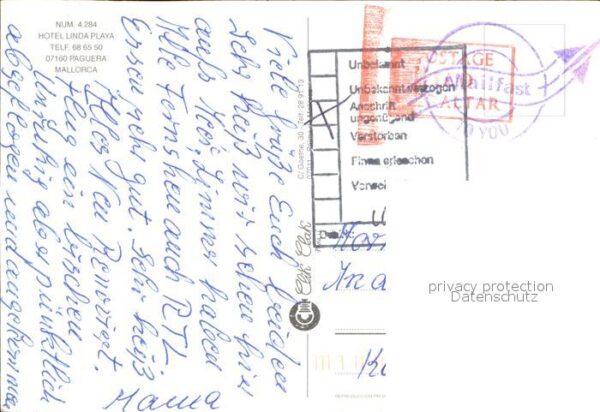 NUM. 4.284
HOTEL LINDA PLAYA
TELF. 68 65 50
07160 PAGUERA
MALLORCA
Viele Grüße Euch beiden
Sehr heiß wir sehen hier
auch Meer, Zimmer haben
mit Fernsehen auch RTL
Essen sehr gut. Sehr heiß
Alles Neu Renoviert.
Flug ein bischen
unruhig aber pünktlich
abgeflogen und angekommen
Mama
C/ Goethe, 30 Telf. 28 91 13
Clik Clak
Unbekannt
Unbekannt verzogen
Anschrift
ungenügend
Verstorben
Firma erloschen
Verwei
POSTAGE
PAID
ALTAR
TO YOU
privacy protection
Datenschutz